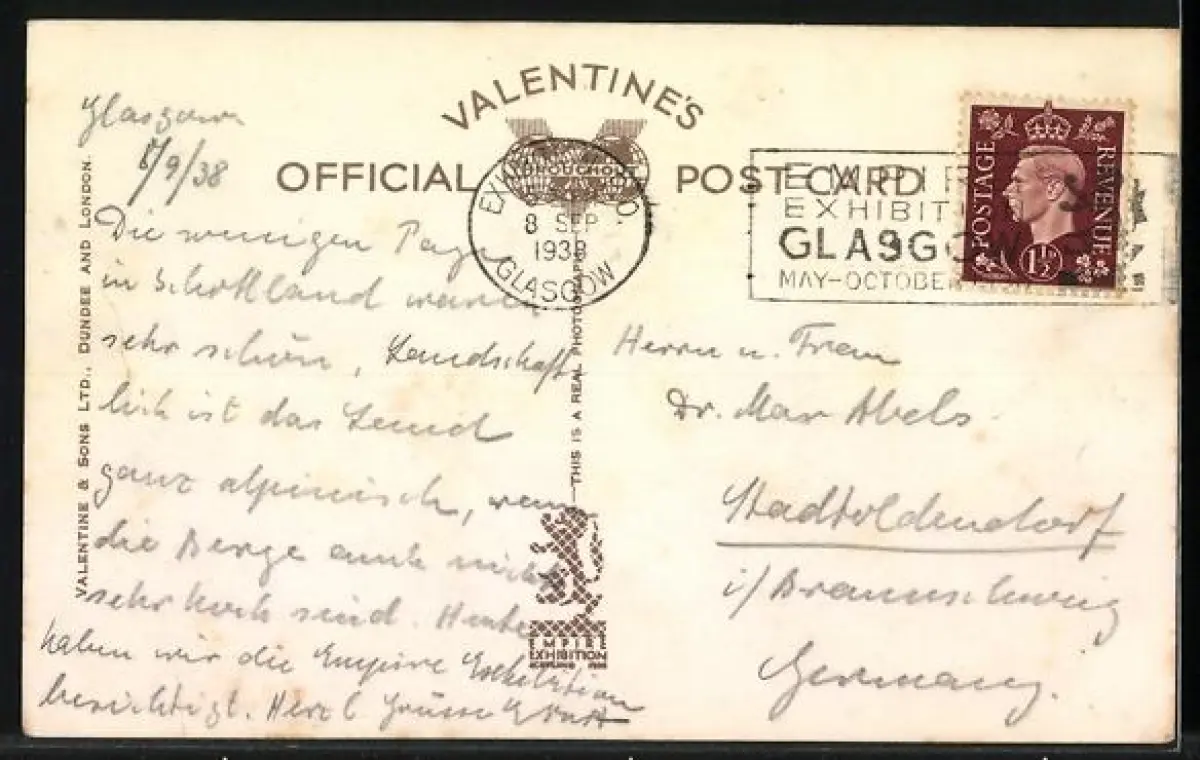 VALENTINE'S
OFFICIAL POST CARD
8 SEP
1938
GLASGOW
EMPIRE
EXHIBIT
GLASGOW
MAY-OCTOBER
POSTAGE
REVENUE
1½D
VALENTINE & SONS LTD., DUNDEE AND LONDON.
THIS IS A REAL PHOTOGRAPH
EMPIRE
EXHIBITION
Glasgow
8/9/38
Die wenigen Tage
in Schottland waren
sehr schön, Landschaft
lich ist das Land
ganz alpinisch, wenn
die Berge auch nicht
sehr hoch sind. Heute
haben wir die Empire Exhibition
besichtigt. Herzl Grüsse
Herrn u. Frau
Dr. Max Abels
Stadtoldendorf
i/Braunschweig
Germany.